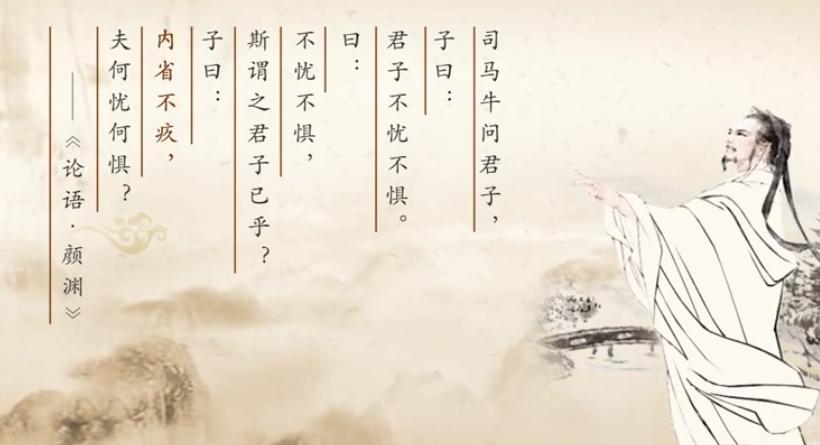 司马牛问君子，
子曰：
君子不忧不惧。
曰：
不忧不惧，
斯谓之君子已乎？
子曰：
内省不疚，
夫何忧何惧？
——《论语·颜渊》